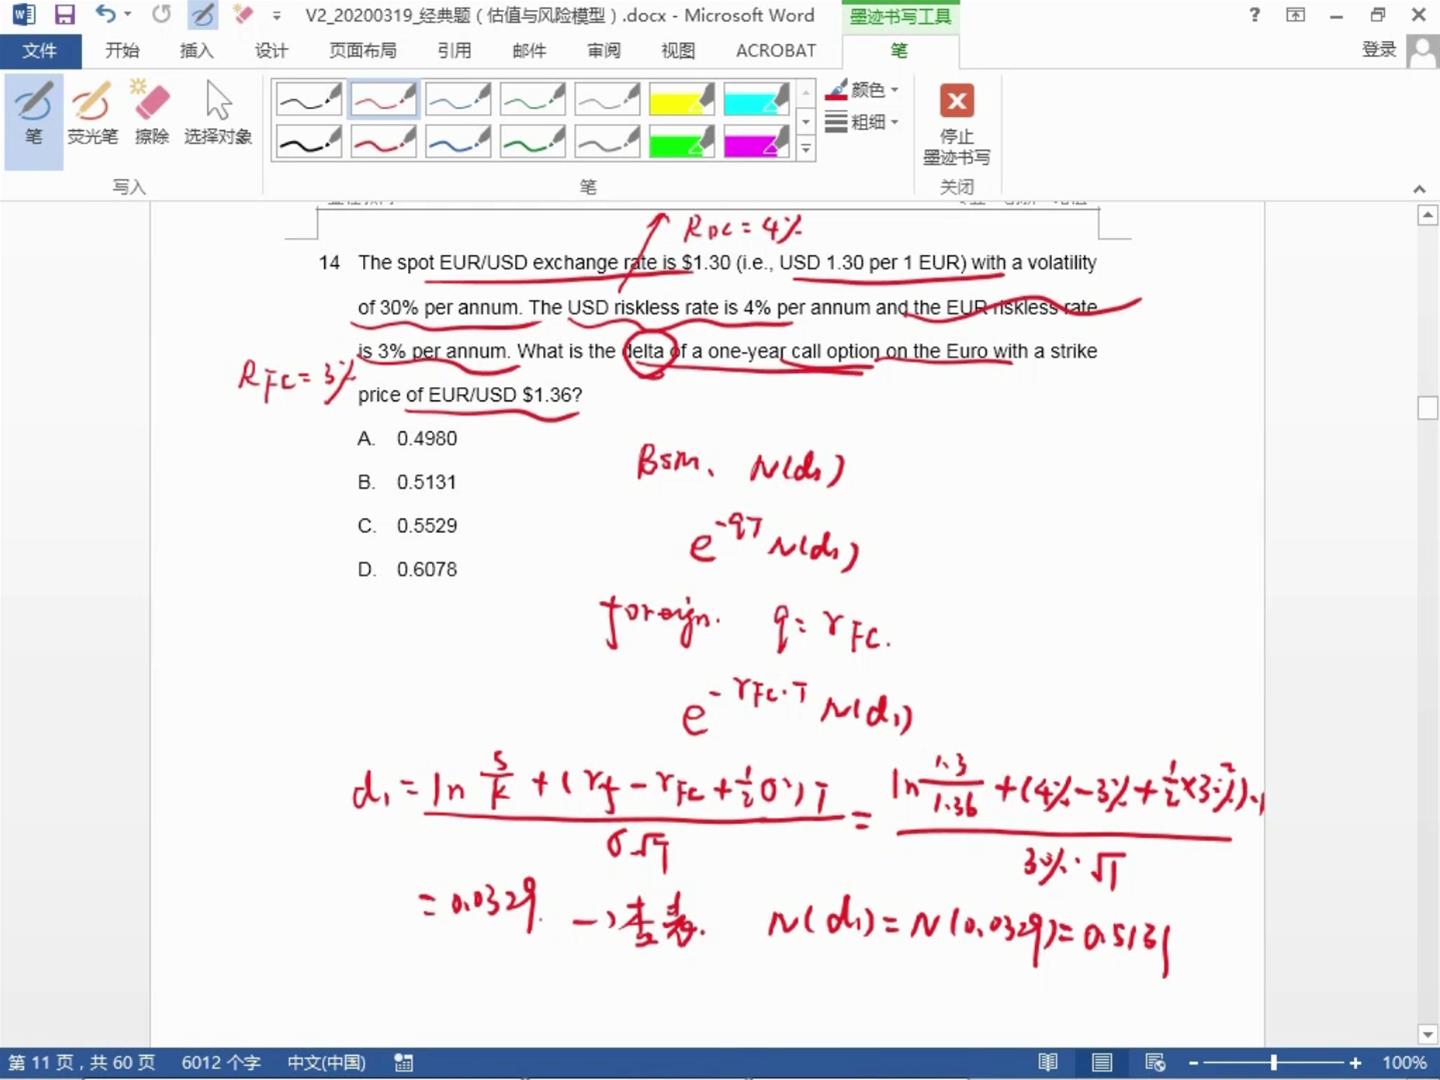 V2_20200319_经典题（估值与风险模型）.docx - Microsoft Word
墨迹书写工具
文件 开始 插入 设计 页面布局 引用 邮件 审阅 视图 ACROBAT 笔 登录
笔 荧光笔 擦除 选择对象 颜色 粗细 停止 墨迹书写
写入 笔 关闭
R_DC = 4%
14 The spot EUR/USD exchange rate is $1.30 (i.e., USD 1.30 per 1 EUR) with a volatility
of 30% per annum. The USD riskless rate is 4% per annum and the EUR riskless rate
is 3% per annum. What is the delta of a one-year call option on the Euro with a strike
R_FC = 3%
price of EUR/USD $1.36?
A. 0.4980
B. 0.5131
C. 0.5529
D. 0.6078
BSM、 N(d₁)
e^-qT N(d₁)
foreign. q = r_FC.
e^-r_FC·T N(d₁)
d₁ = (ln S/K + (r_f - r_FC + ½σ²)T) / σ√T = (ln 1.3/1.36 + (4% - 3% + ½×30%²)·1) / 30%·√1
= 0.0329. →查表. N(d₁) = N(0.0329) = 0.5131
第 11 页，共 60 页 6012 个字 中文(中国) 100%